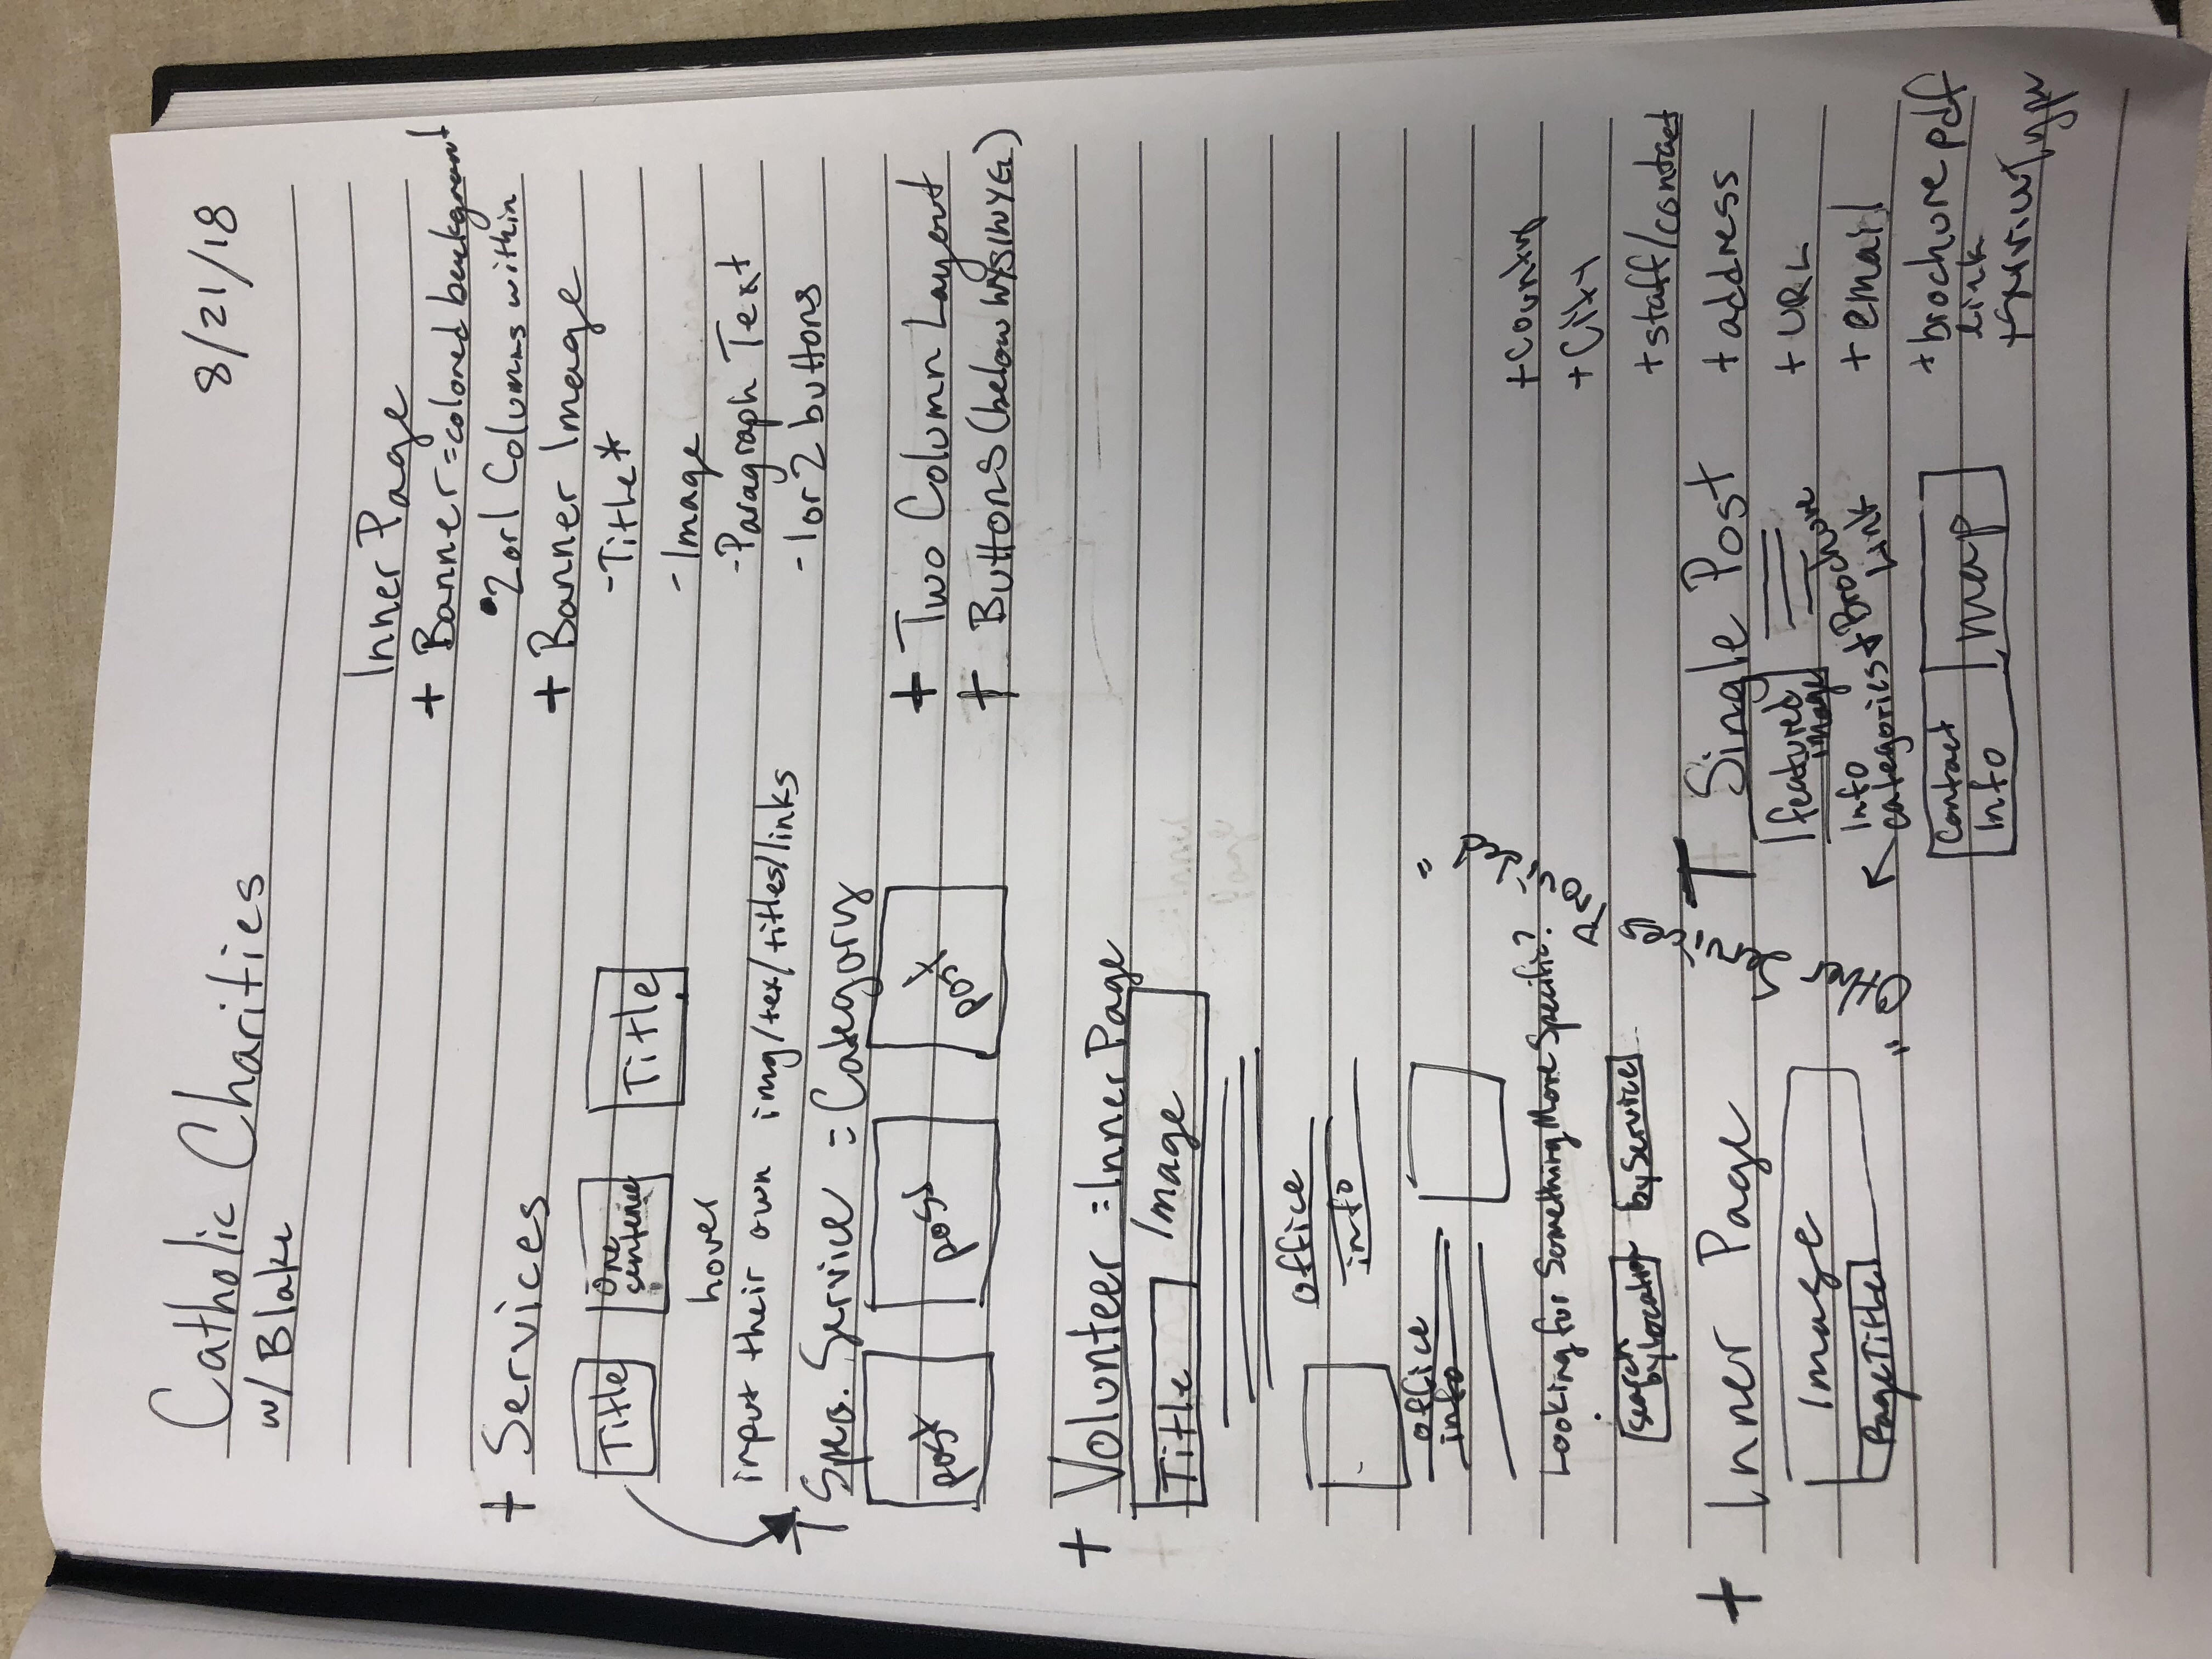 Catholic Charities
8/21/18
w/ Blake
Inner Page
+ Banner = colored background
• 2 or 1 Columns within
+ Banner Image
- Title*
- Image
- Paragraph Text
- 1 or 2 buttons
+ Two Column Layout
+ Buttons (below WYSIWYG)
+ Services
Title
One sentence
Title
hover
input their own img/tex/titles/links
+ Spec. Service = Category
post
post
post
+ Volunteer = Inner Page
Title
Image
office
info
office
info
Looking for Something More Specific?
search by location
by Service
+ Inner Page
Image
Page Title
+ Single Post
featured
image
Info
categories
+ Brochure
link
Contact
Info
map
+ County
+ City
+ staff/contact
+ address
+ URL
+ email
+ brochure pdf
link